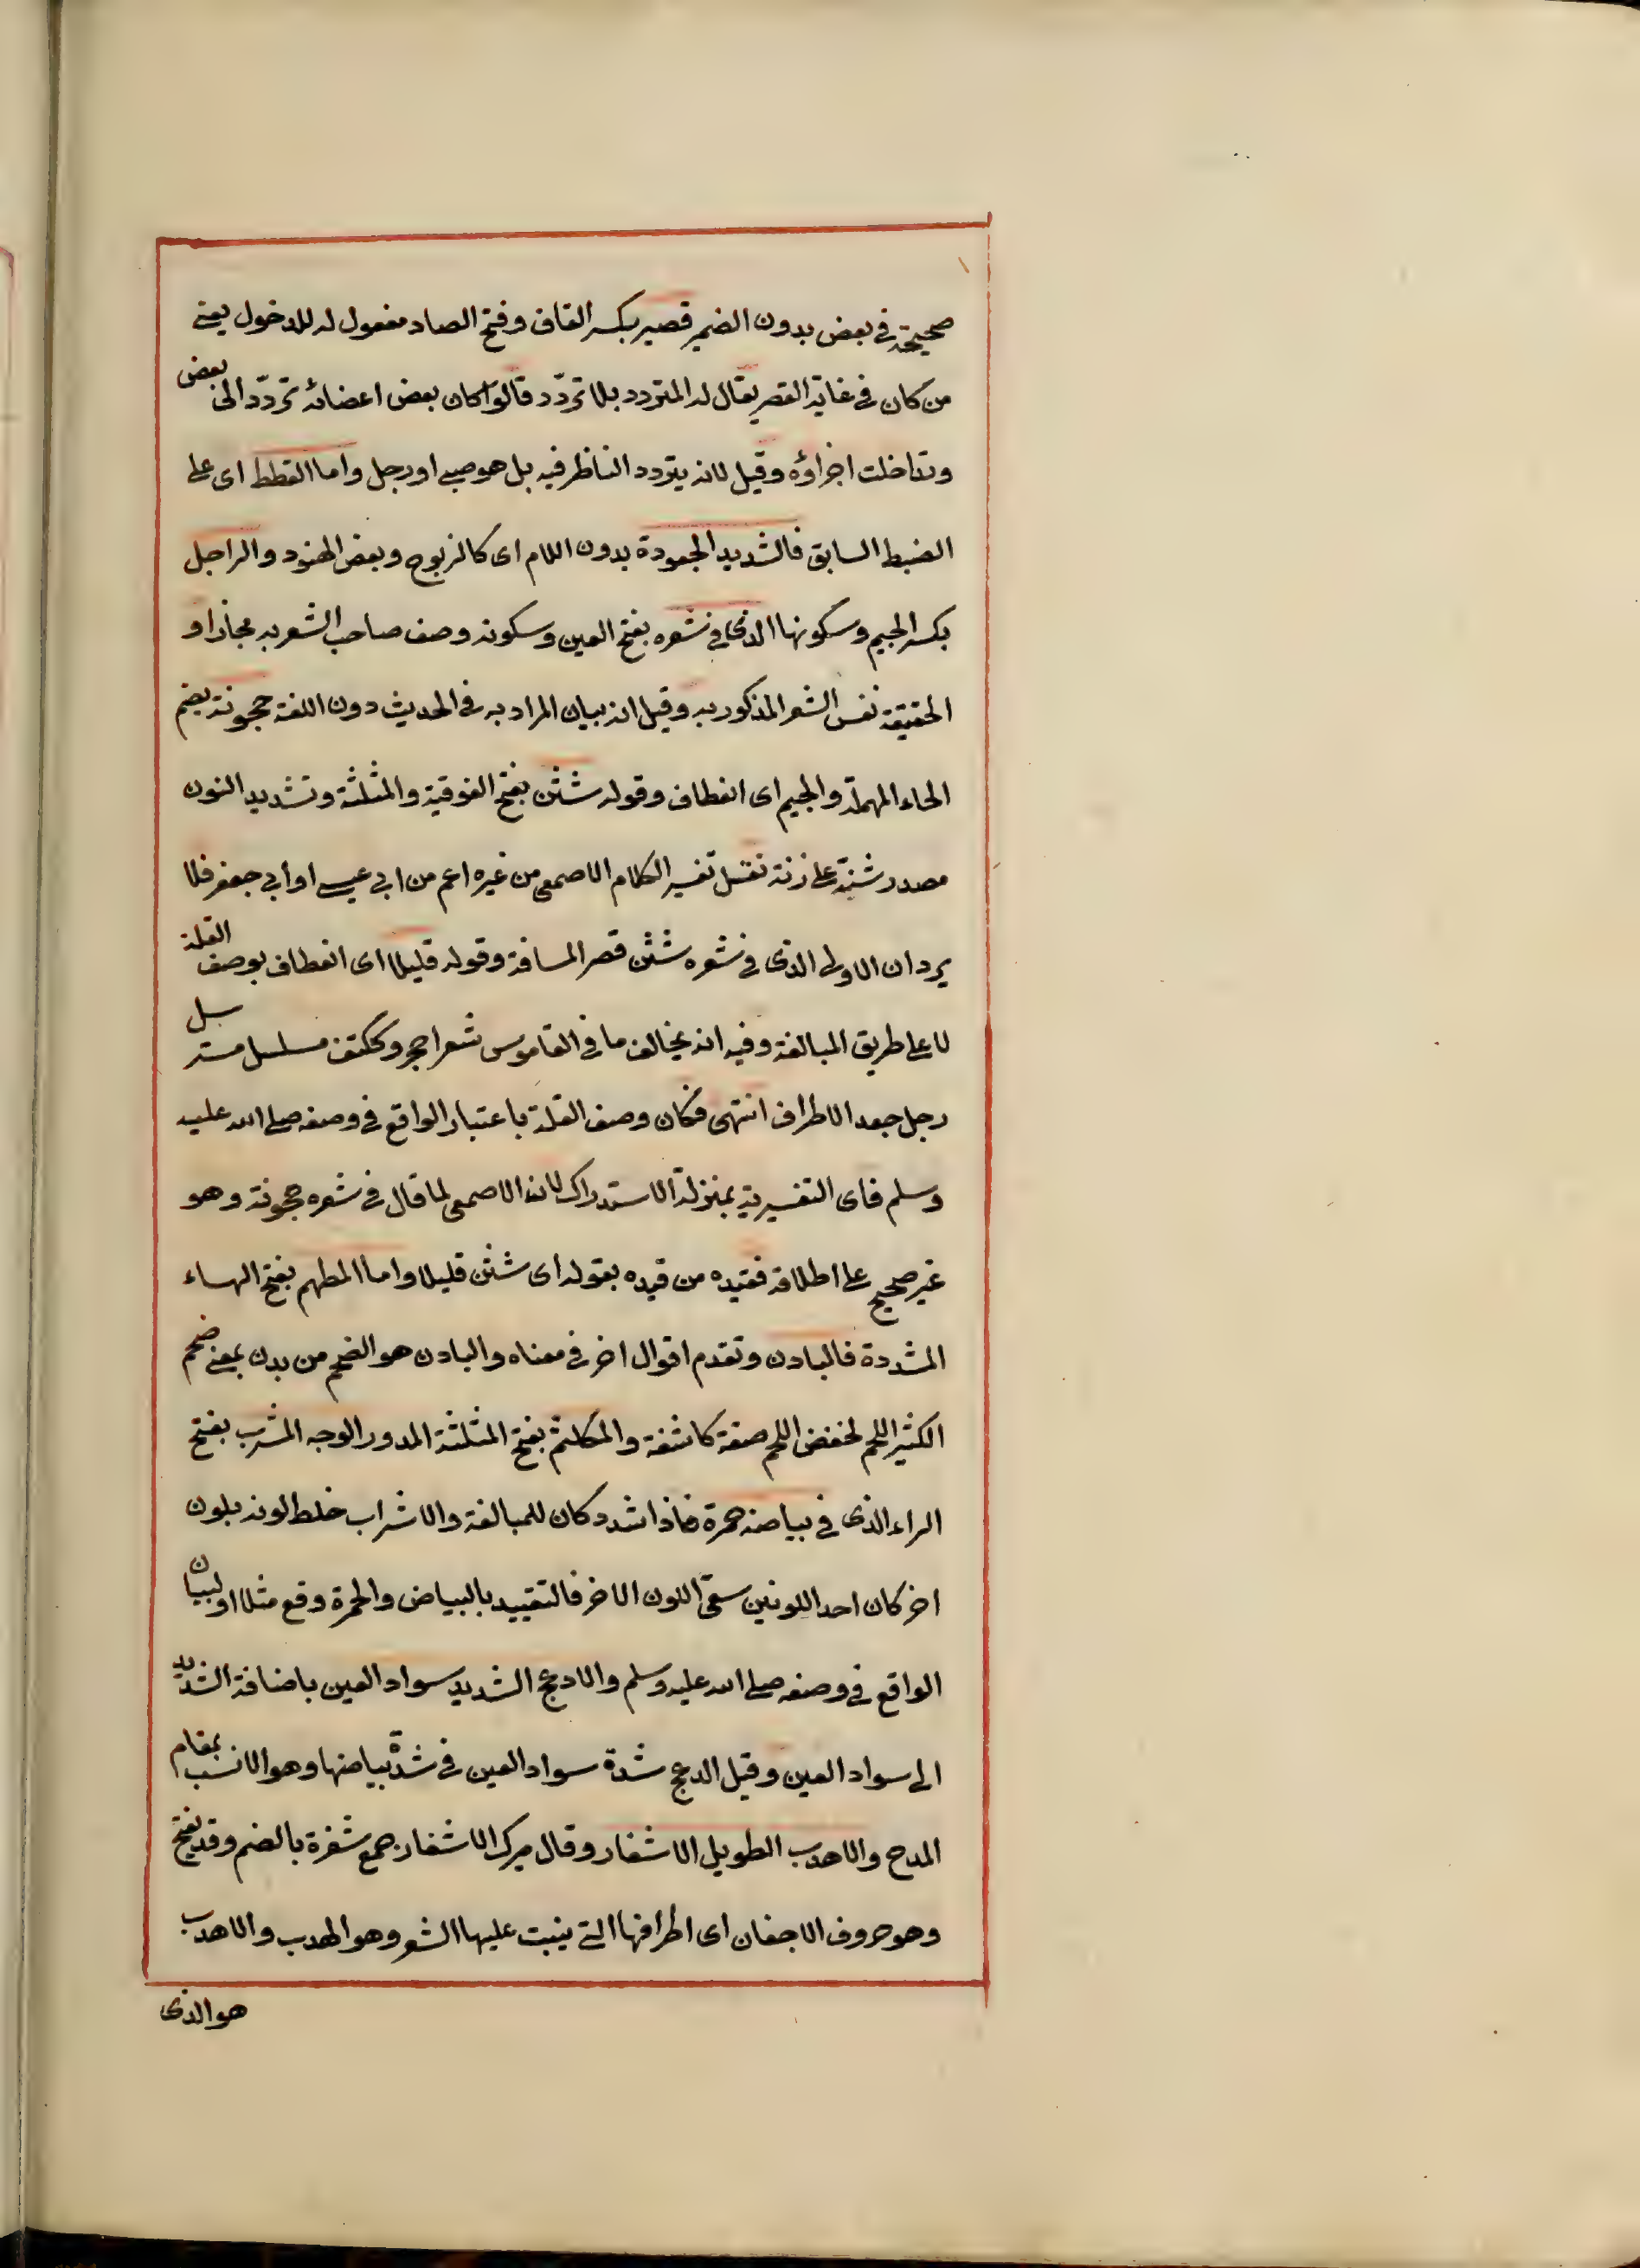 صحيحة في بعض بدون الضم قصير بكسر القاف وفتح الصاد مفعول له للدخول يعني
من كان في غاية القصر يقال له المتردد بلا تردّد قالوا كان بعض اعضائه تردّد الى بعض
وتداخلت اجزاؤه وقيل لانه يتردد الناظر فيه بل هو صبي او رجل واما القطط اى على
الضبط السابق فالشديد الجعودة بدون اللام اى كالزنوج وبعض الهنود والراجل
بكسر الجيم وسكونها الذى في شعره بفتح العين وسكونه وصف صاحب الشعر به مجازا و
الحقيقة نفس الشعر المذكور به وقيل انه بيان المراد به في الحديث دون اللغة حجونة بضم
الحاء المهملة والجيم اى انعطاف وقوله تثن بفتح الفوقية والمثلثة وتشديد النون
مصدر تثنى على زنة تفعل تفسير الكلام الاصمعي من غيره اعم من ابي عيسى او أبي جعفر فلا
يرد ان الاولى الذى في شعره تثن قصر المسافة وقوله قليلا اى انعطاف بوصف القلة
لا على طريق المبالغة وفيه انه يخالف ما في القاموس شعر احجر وككتف مسلسل مسترسل
رجل جعد الاطراف انتهى فكان وصف القلة باعتبار الواقع في وصفه صلى الله عليه
وسلم فاى التفسيرية بمنزلة الاستدراك لان الاصمعي لما قال في شعره حجونة وهو
غير صحيح على اطلاقه فقيده من قيده بقوله اى تثن قليلا واما المطهم بفتح الهاء
المشددة فالبادن وتقدم اقوال اخر في معناه والبادن هو الضخم من بدن بمعنى ضخم
الكثير اللحم لخفض اللحم صفة كاشفة والمكلثم بفتح المثلثة المدور الوجه المشرب بفتح
الراء الذى في بياضه حمرة فاذا شدد كان للمبالغة والاشراب خلط لونه بلون
اخر كان احد اللونين سقى اللون الاخر فالتقييد بالبياض والحمرة وقع مثلا او لبيان
الواقع في وصفه صلى الله عليه وسلم والادعج الشديد سواد العين باضافة الشديد
الى سواد العين وقيل الدعج شدة سواد العين في شدة بياضها وهو الانسب بمقام
المدح والاهدب الطويل الاشفار وقال ميرك الاشفار جمع شفرة بالضم وقد يفتح
وهو حروف الاجفان اى اطرافها التي ينبت عليها الشعر وهو الهدب والاهدب
هو الذى